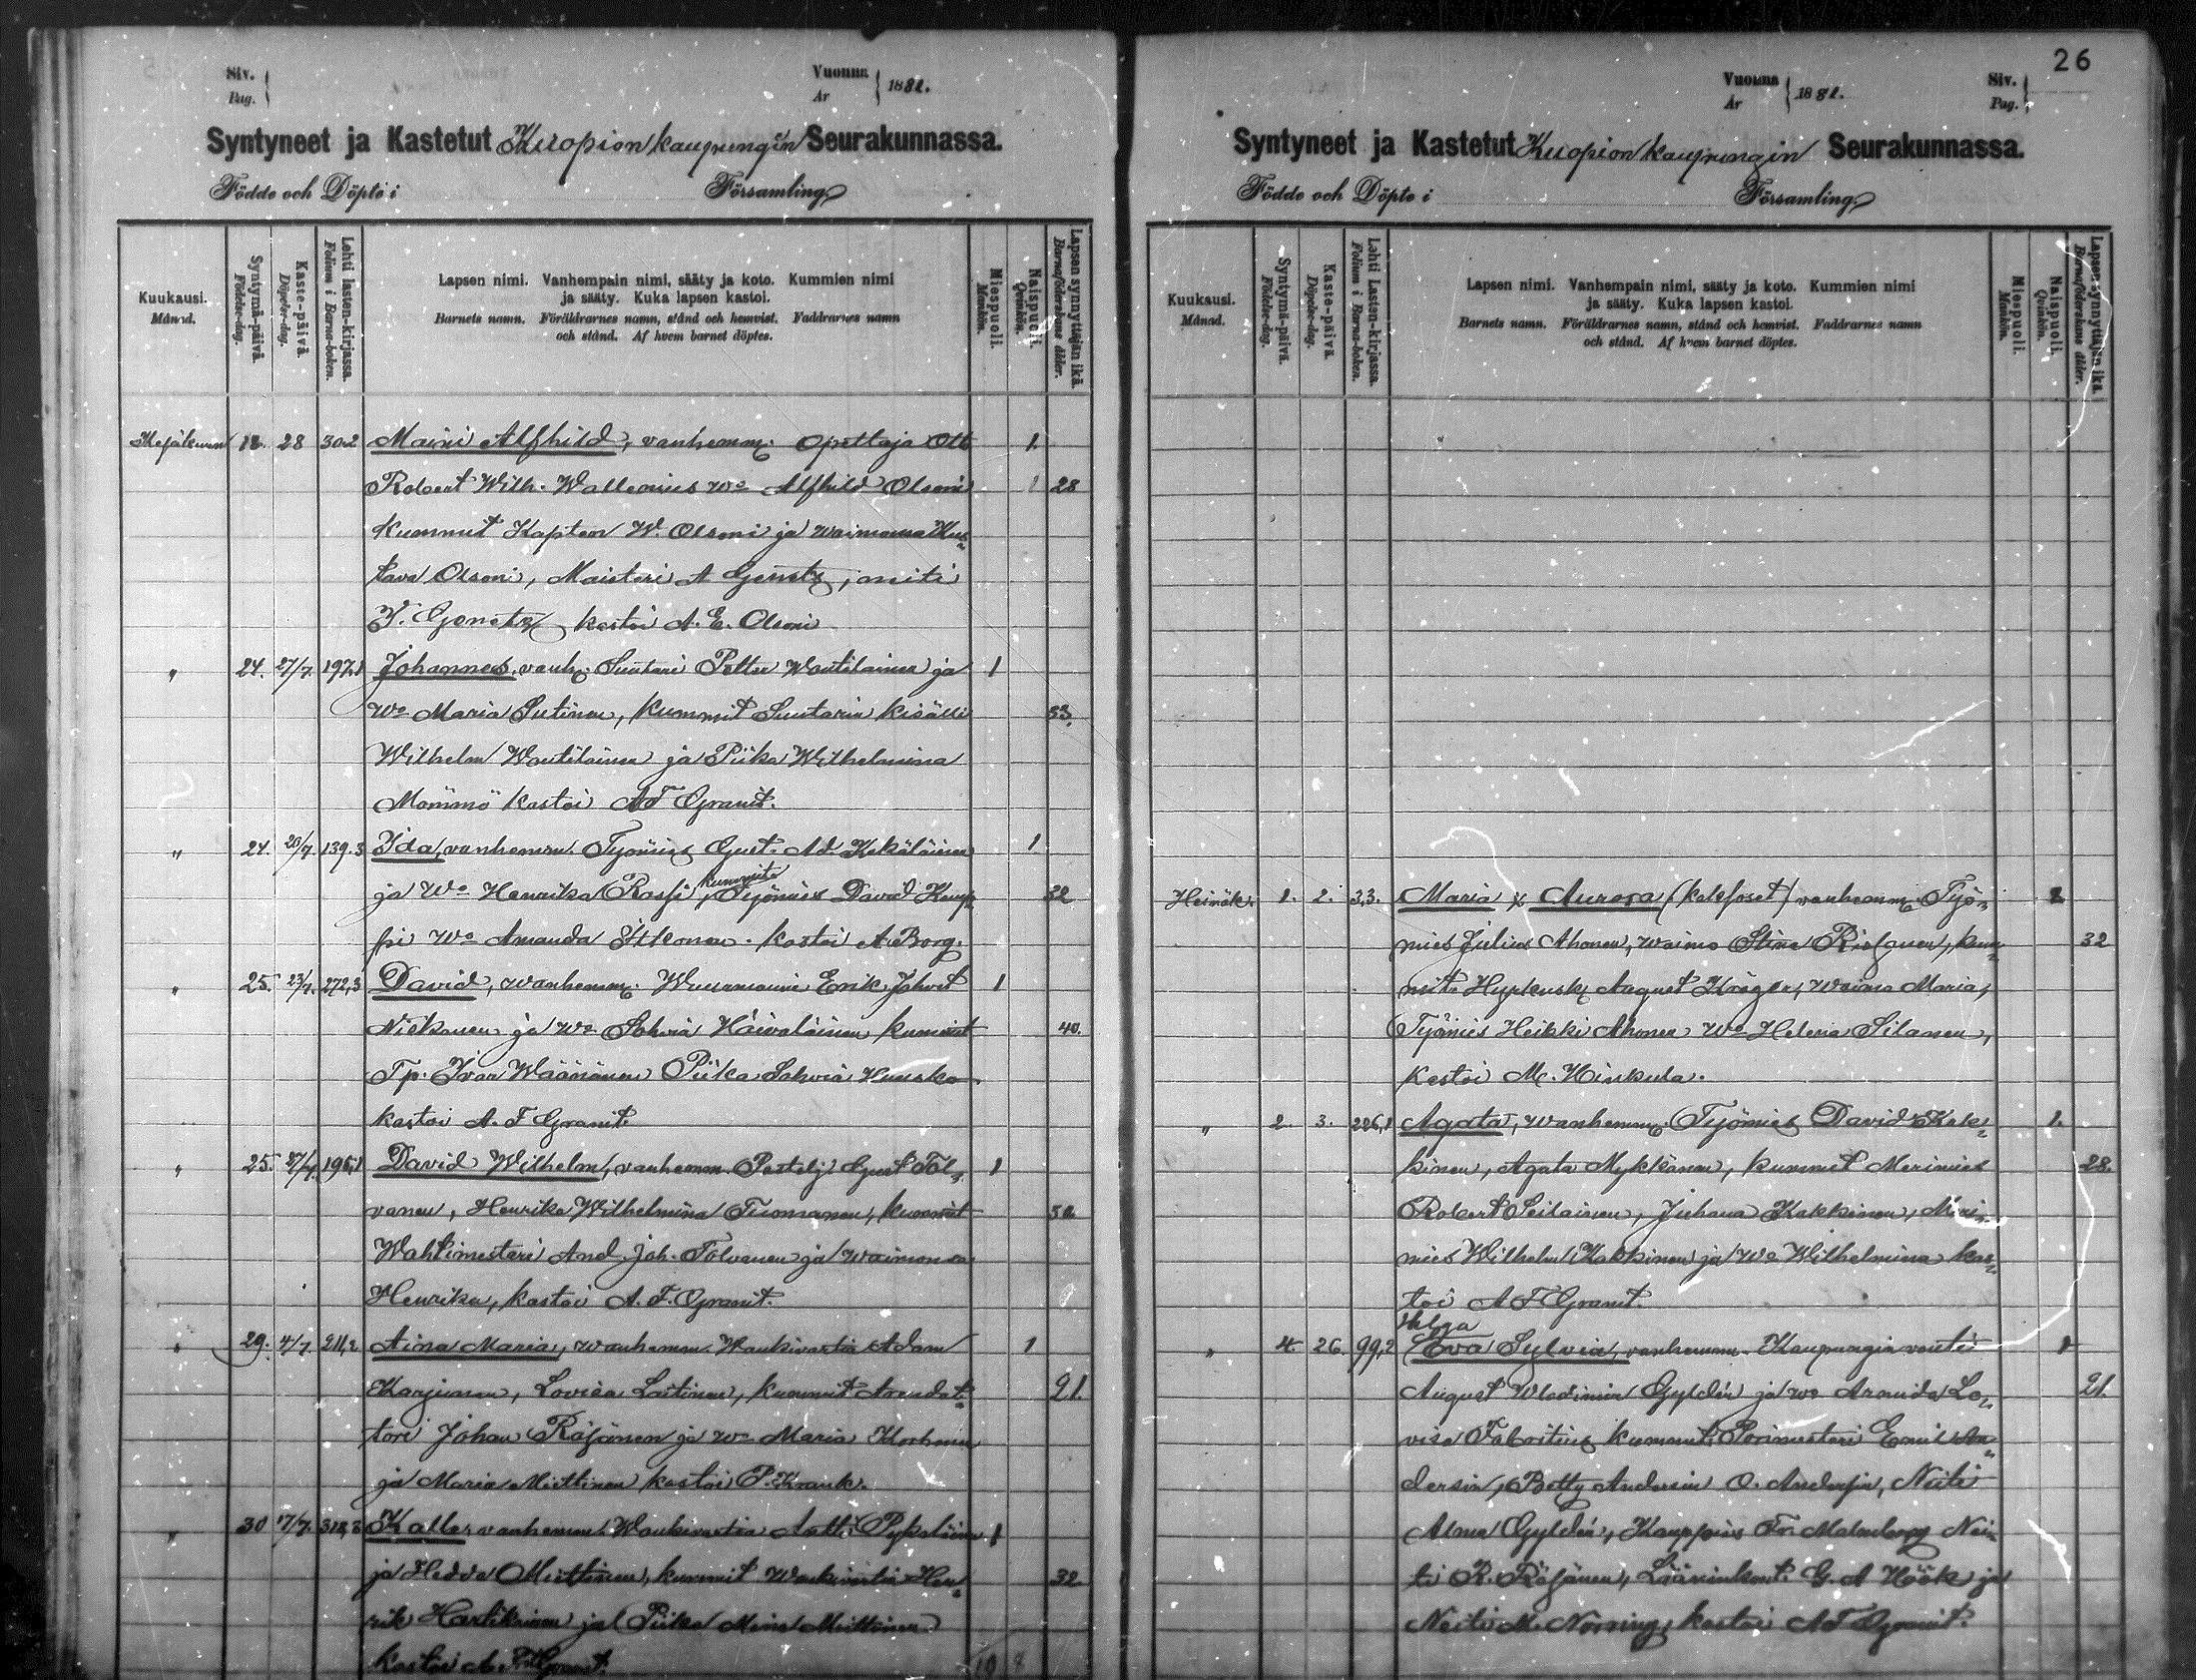 Siv.
Pag.
Vuonna
År
1881.
Syntyneet ja Kastetut Kuopion kaupungin Seurakunnassa.
Födde och Döpte i Församling
Kuukausi.
Månad.
Syntymä-päivä.
Födelse-dag.
Kaste-päivä.
Döpelse-dag.
Lehti lasten-kirjassa.
Folium i Barna-boken.
Lapsen nimi. Vanhempain nimi, sääty ja koto. Kummien nimi
ja sääty. Kuka lapsen kastoi.
Barnets namn. Föräldrarnes namn, stånd och hemvist. Faddrarnes namn
och stånd. Af hvem barnet döptes.
Miespuoli.
Mankön.
Naispuoli.
Qvinkön.
Lapsen synnyttäjän ikä.
Barnaföderskans ålder.
Kesäkuun 12. 28 302 Maini Alfhild, vanhemm. Opettaja Otto 1.
Robert Wilh. Wallenius wo Alfhild Olsoni 28
kummit Kapten W. Olsoni ja waimonsa Kus„
tava Olsoni, Maisteri A Genetz, neiti
Genetz kastoi A. E. Olsoni
„ 24. 27/7. 197,1 Johannes, vanh. Suutari Petter Woutilainen ja 1
wo Maria Sutinen, kummit Suutarin kisälli 33.
Wilhelm Woutilainen ja Piika Wilhelmina
Mömmö kastoi AF Granit.
„ 24. 139.3 Ida, vanhemm. Työmies Gust. Ad. Kekäläinen 1
ja wo Henrika Rassi, kummit Työmies David Kaup„ 32
pi wo Amanda Itkonen. kastoi A. Borg.
„ 25. 23/7. 272,3 David, wanhemm. Erik Johvet 1
Niskanen ja wo Sohvia Häivaläinen kummit 40.
Tp. Ivar Wäänänen Piika Sohvia Huusko
kastoi A. F Granit.
„ 25. 27/7. 195,1 David Wilhelm, vanhemm. Gust Tol„ 1
vanen, Henrika Wilhelmina Tuomanen, kummit
Wahtimestari And. Joh. Tolvanen ja waimonsa
Henrika, kastoi A. F. Granit.
„ 29. 4/7. 211,2 Aina Maria, wanhemm. Wankivartia Adam 1
Karjunen, Lovisa Laitinen, kummit Arendat„ 21.
tori Johan Räsänen ja wo Maria Korhonen
ja Maria Miettinen kastoi P. Krank.
„ 30 17/7. Kalle, vanhemm. Wankivartia Antti Pykäläinen 1
ja Hedda Miettinen, kummit Wankivartia Hen„ 32
rik Hartikainen ja Piika Mina Miettinen
kastoi A. F. Granit.
26
Vuonna
År
1881.
Siv.
Pag.
Syntyneet ja Kastetut Kuopion kaupungin Seurakunnassa.
Födde och Döpte i Församling
Kuukausi.
Månad.
Syntymä-päivä.
Födelse-dag.
Kaste-päivä.
Döpelse-dag.
Lehti Lasten-kirjassa.
Folium i Barna-boken.
Lapsen nimi. Vanhempain nimi, sääty ja koto. Kummien nimi
ja sääty. Kuka lapsen kastoi.
Barnets namn. Föräldrarnes namn, stånd och hemvist. Faddrarnes namn
och stånd. Af hvem barnet döptes.
Miespuoli.
Mankön.
Naispuoli.
Qvinkön.
Lapsen synnyttäjän ikä.
Barnaföderskans ålder.
Heinäk. 1. 2. 3,3. Maria & Aurora (kaksoset) vanhemm. Työ„ 2.
mies Julius Ahonen, waimo Stina Rissanen, kum„ 32
mit August Kröger, waimo Maria,
Työmies Heikki Ahonen wo Helena Silanen,
kastoi M. Hinkula.
„ 2. 3. 226,1 Agata, wanhemm. Työmies David Kak„ 1.
kinen, Agata Mykkänen, kummit Merimies 28.
Robert Seilainen, Juhana Kakkinen, Meri„
mies Wilhelm Kakkinen ja wo Wilhelmina kas„
toi A F Granit.
Helga
„ 4. 26. 99,2 Eva Sylvia, vanhemm. Kaupungin vouti 1
August Wladimir Gyldén ja wo Aramida Lo„ 21.
visa Fabritius kummit. Porimestari Emil An„
dersin, Betty Andersin O. Andersin, Neiti
Alma Gyldén, Kauppias Fr. Malmberg Nei„
ti R. Räsänen, Lääninkont. G. A Höök ja
Neiti M. Norring, kastoi AF Granit.